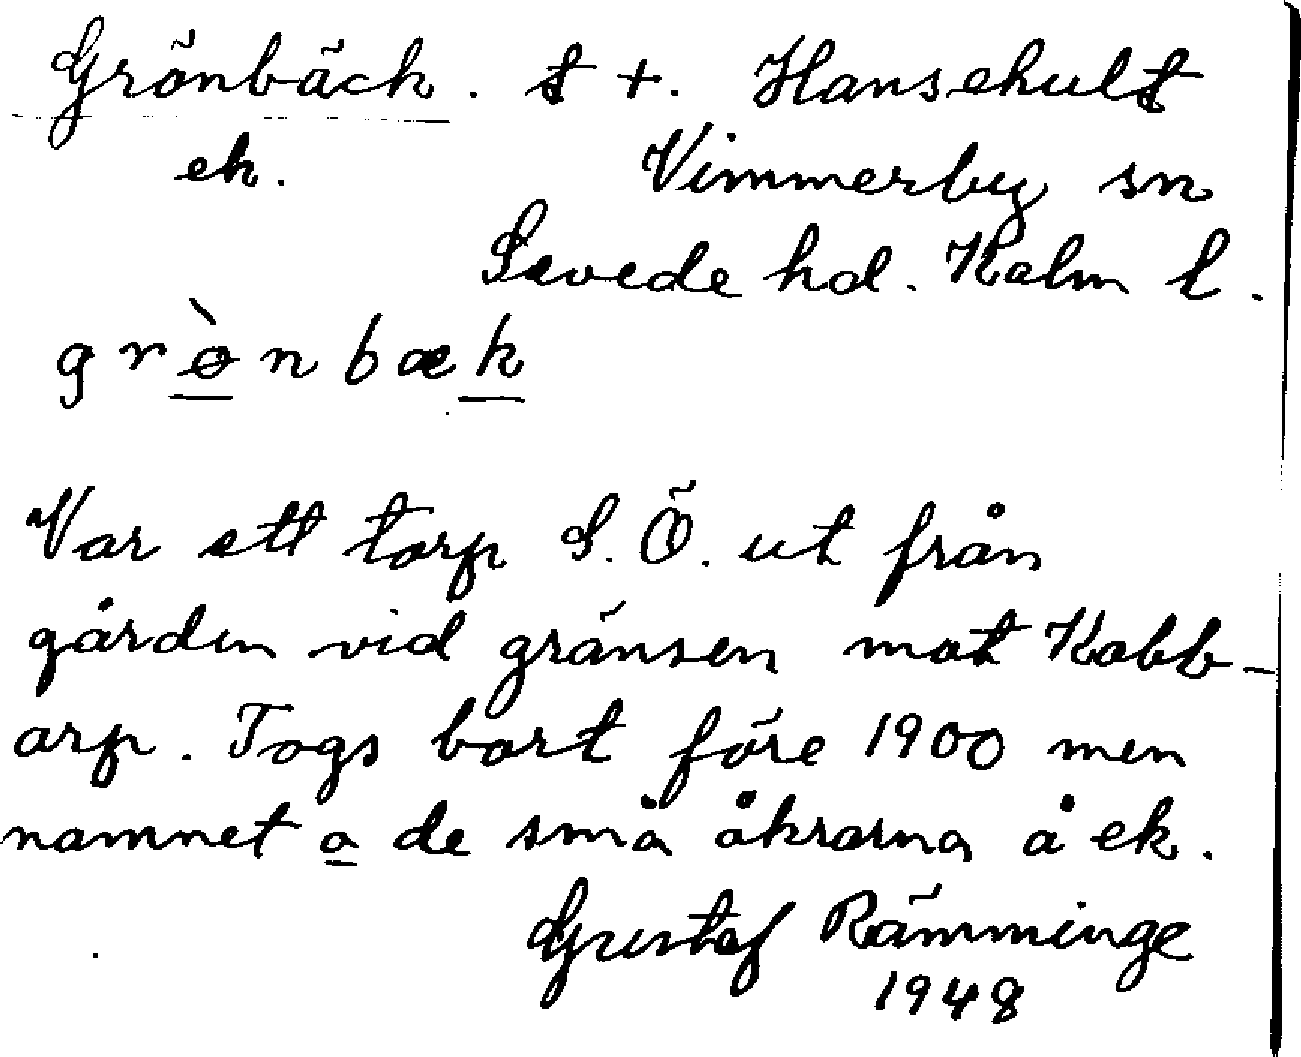 Grönbäck. t +. Hansehult
ek. Vimmerby sn
Sevede hd. Kalm l.
grø̀nbæk
Var ett torp S.Ö. ut från
gården vid gränsen mot Kabb-
arp. Togs bort före 1900 men
namnet o de små åkrarna å ek.
Gustaf Rämminge
1948